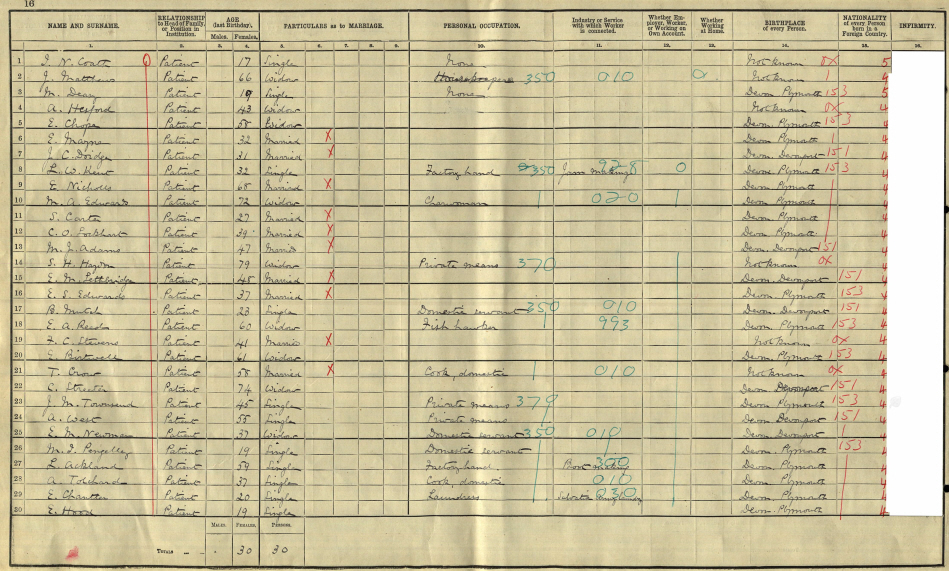 16
NAME AND SURNAME. RELATIONSHIP to Head of Family, or Position in Institution. AGE (last Birthday). PARTICULARS as to MARRIAGE. PERSONAL OCCUPATION. Industry or Service with which Worker is connected. Whether Employer, Worker, or Working on Own Account. Whether Working at Home. BIRTHPLACE of every Person. NATIONALITY of every Person born in a Foreign Country. INFIRMITY.
Males. Females.
1. 2. 3. 4. 5. 6. 7. 8. 9. 10. 11. 12. 13. 14. 15. 16.
1 Patient 17 Single None Not known 0X 5
2 J. Matthews Patient 66 Widow Housekeeper 350 010 Not known 4
3 M. Deay Patient 19 Single None Devon Plymouth 153 5
4 A. Hexford Patient 43 Widow Not known 0X 4
5 E. Chope Patient 58 Widow Devon Plymouth 153 4
6 E. Mayne Patient 32 Married X Devon Plymouth 4
7 Patient 31 Married X Devon Devonport 151 4
8 L. W. Kent Patient 32 Single Factory hand 350 Jam making 928 0 Devon Plymouth 153 4
9 E. Nicholls Patient 68 Married X Devon Plymouth 4
10 M. A. Edwards Patient 72 Widow Charwoman 020 Devon Plymouth 4
11 S. Carter Patient 27 Married X Devon Plymouth 4
12 C. O. Lockhart Patient 39 Married X Devon Plymouth 4
13 M. J. Adams Patient 47 Married X Devon Devonport 151 4
14 S. H. Patient 79 Widow Private means 370 Not known 0X 4
15 E. M. Lethbridge Patient 48 Married X Devon Devonport 151 4
16 E. S. Edwards Patient 37 Married X Devon Plymouth 153 4
17 B. Mutch Patient 23 Single Domestic servant 350 010 Devon Devonport 151 4
18 E. A. Reed Patient 60 Widow Fish hawker 993 Devon Plymouth 153 4
19 F. C. Stevens Patient 41 Married X Not known 0X 4
20 E. Birtwell Patient 61 Widow Devon Plymouth 153 4
21 T. Crow Patient 58 Married X Cook, domestic 010 Not known 0X 4
22 C. Streeter Patient 74 Widow Devon Devonport 151 4
23 J. M. Townsend Patient 45 Single Private means 370 Devon Plymouth 153 4
24 A. West Patient 55 Single Private means Devon Devonport 151 4
25 E. M. Newman Patient 37 Widow Domestic servant 350 010 Devon Devonport 4
26 M. J. Pengelley Patient 19 Single Domestic servant Devon Plymouth 153 4
27 L. Ackland Patient 59 Single Factory hand Boot making Devon Plymouth 4
28 A. Patient 37 Single Cook, domestic 010 Devon, Plymouth 4
29 E. Chantter Patient 20 Single Laundress 030 Devon, Plymouth 4
30 E. Hood Patient 19 Single Devon Plymouth 4
MALES. FEMALES. PERSONS.
TOTALS 30 30